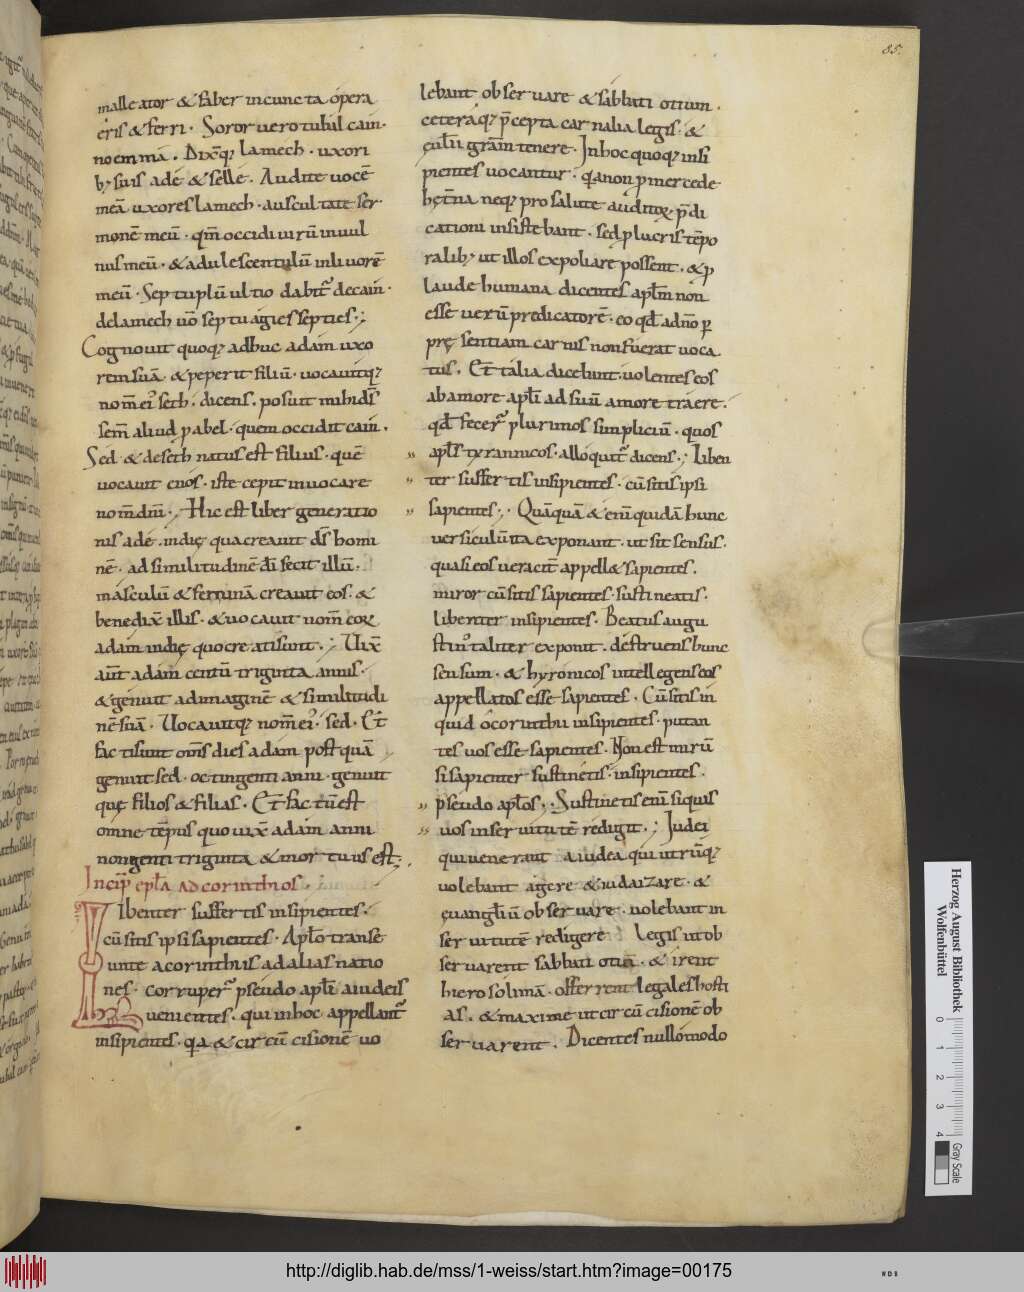 85.
malleator & faber incuncta opera
ęris & ferri. Soror uero tubal cain.
noemma. Dixq; lamech. uxori
b; suis ade & selle. Audite uocē
meā uxores lamech. auscultate ser
monē meū. qm̄ occidi uirū inuul
nus meū. & adulescentulū inliuorē
meū. Septuplū ultio dabit̄ decain.
delamech uō septuagies septies.;
Cognouit quoq; adhuc adam uxo
rem suā. & peperit filiū. uocauitq;
nom̄ ei' seth. dicens. posuit mihi ds̄
sem̄ aliud p abel. quem occidit cain.
Sed & deseth natus est filius. quē
uocauit enós. iste cepit inuocare
nom̄ dn̄i.; Hic est liber generatio
nis adę. indię qua creauit ds̄ homi
nē. ad similitudinē dī fecit illū.
masculū & feminā creauit eos. &
benedix̄ illis. & uocauit nom̄ eoꝝ
adam indię quo creati sunt.; Uix̄
aut̄ adam centū triginta annis.
& genuit adimaginē & similitudi
nē suā. Uocauitq; nom̄ ei'. sed. Et
facti sunt om̄s dies adam postquā
genuit sed. octingenti anni. genuit
quę filios & filias. Et factū est
omne tēpus quo uix̄ adam anni
nongenti triginta & mortuus est.;
Incip̄ epl̄a ad corinthios.
Libenter suffertis insipientes.
cū sitis ipsi sapientes. Apl̄o transe
unte acorinthiis adalias natio
nes. corruper̄ pseudo apl̄i aiudeis
uenientes. qui inhoc appellant̄
insipientes. qa & circū cisionē uo
lebant obseruare & sabbati otium.
ceteraq; p̄cepta carnalia legis. &
ęul̄iū gram̄ tenere. In hoc quoq; insi
pientes uocantur. qa non p mercede
hęt̄na neq; pro salute auditoꝝ. p̄di
cationi insistebant. sed p lucris tēpo
ralib; ut illos expoliare possent. & p
laude humana dicentes apl̄m non
esse uerū predicatorē. eo qd̄ adn̄o p
pręsentiam carnis non fuerat uoca
tus. Et talia dicebunt. uolentes eos
abamore apl̄i ad suū amore traere.
qd̄ fecer̄ plurimos simpliciū. quos
apl̄s tyrannicos. alloquit̄ dicens.; Liben
ter suffertis insipientes. cū sitis ipsi
sapientes.; Quāquā & enī quidā hunc
uersiculū ita exponant. ut sit sensus.
quasi eos ueracit̄ appell& sapientes.
miror cū sitis sapientes. sustineatis.
libenter insipientes. Beatus augu
stin' taliter exponit. destruens hunc
sensum. & hyronicos intellegens eos
appellatos esse sapientes. Cū sitis in
quid ô corinthii insipientes. putan
tes uos esse sapientes. Non est mirū
si sapienter sustinetis. insipientes.
pseudo apl̄os.. Sustinetis enī siquis
uos inseruitutē redigit.; Iudei
qui uenerant aiudea qui utrūq;
uolebant agere & iudaizare. &
ęuangl̄iū obseruare. uolebant in
seruitutē redigere legis ut ob
seruarent sabbati otiū. & irent
hierosolimā. offerrent legales hosti
as. & maxime ut circū cisionē ob
seruarent. Dicentes nullomodo
Herzog August Bibliothek
Wolfenbüttel
0 1 2 3 4
Gray Scale
http://diglib.hab.de/mss/1-weiss/start.htm?image=00175